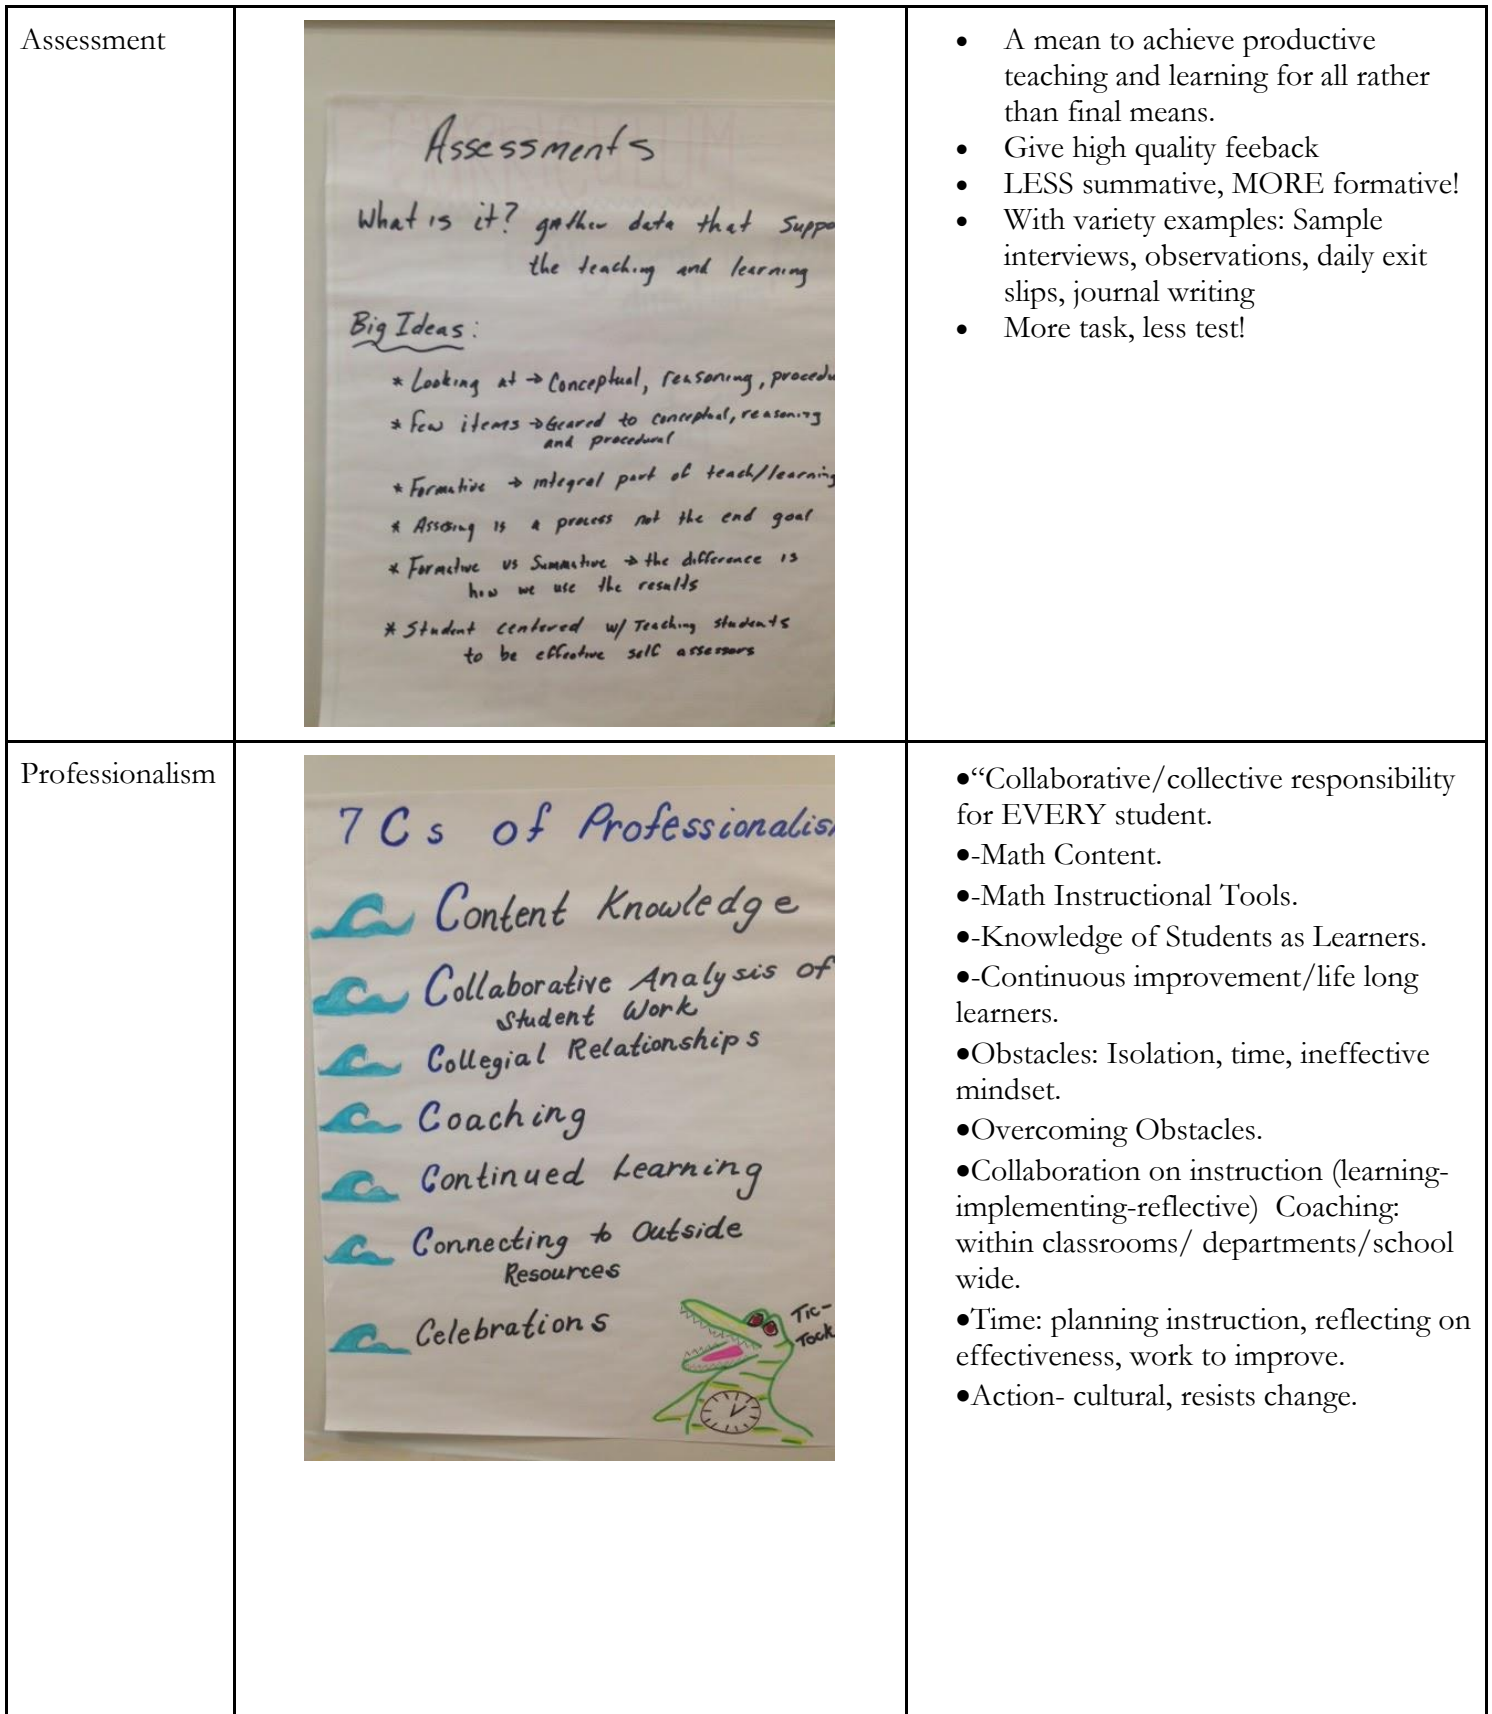 Assessment
Assessments
What is it? gather data that Suppo
the teaching and learning
Big Ideas:
* Looking at → Conceptual, reasoning, procedu
* Few items → Geared to conceptual, reasoning
and procedural
* Formative → integral part of teach/learning
* Assesing is a process not the end goal
* Formative vs Summative → the difference is
how we use the results
* Student centered w/ Teaching students
to be effective self assessors
• A mean to achieve productive
teaching and learning for all rather
than final means.
• Give high quality feeback
• LESS summative, MORE formative!
• With variety examples: Sample
interviews, observations, daily exit
slips, journal writing
• More task, less test!
Professionalism
7 Cs of Professionalis
Content Knowledge
Collaborative Analysis of
Student Work
Collegial Relationships
Coaching
Continued Learning
Connecting to Outside
Resources
Celebrations
Tic-
Tock
•“Collaborative/collective responsibility
for EVERY student.
•-Math Content.
•-Math Instructional Tools.
•-Knowledge of Students as Learners.
•-Continuous improvement/life long
learners.
•Obstacles: Isolation, time, ineffective
mindset.
•Overcoming Obstacles.
•Collaboration on instruction (learning-
implementing-reflective)  Coaching:
within classrooms/ departments/school
wide.
•Time: planning instruction, reflecting on
effectiveness, work to improve.
•Action- cultural, resists change.